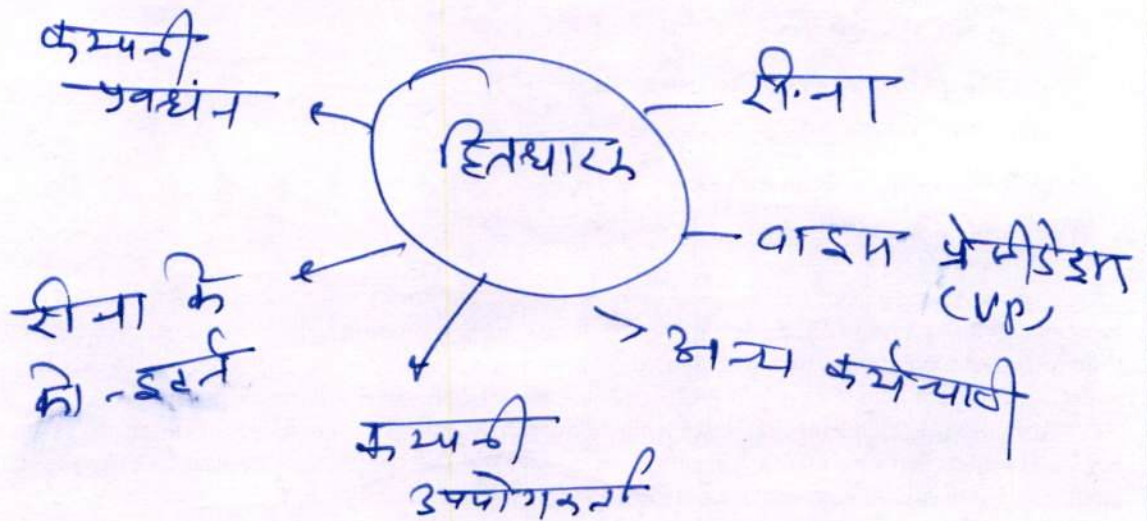 कम्पनी
प्रबन्धन
हितधारक
रीना
वाइस प्रेसीडेंट
(VP)
अन्य कर्मचारी
कम्पनी
उपयोगकर्ता
रीना के